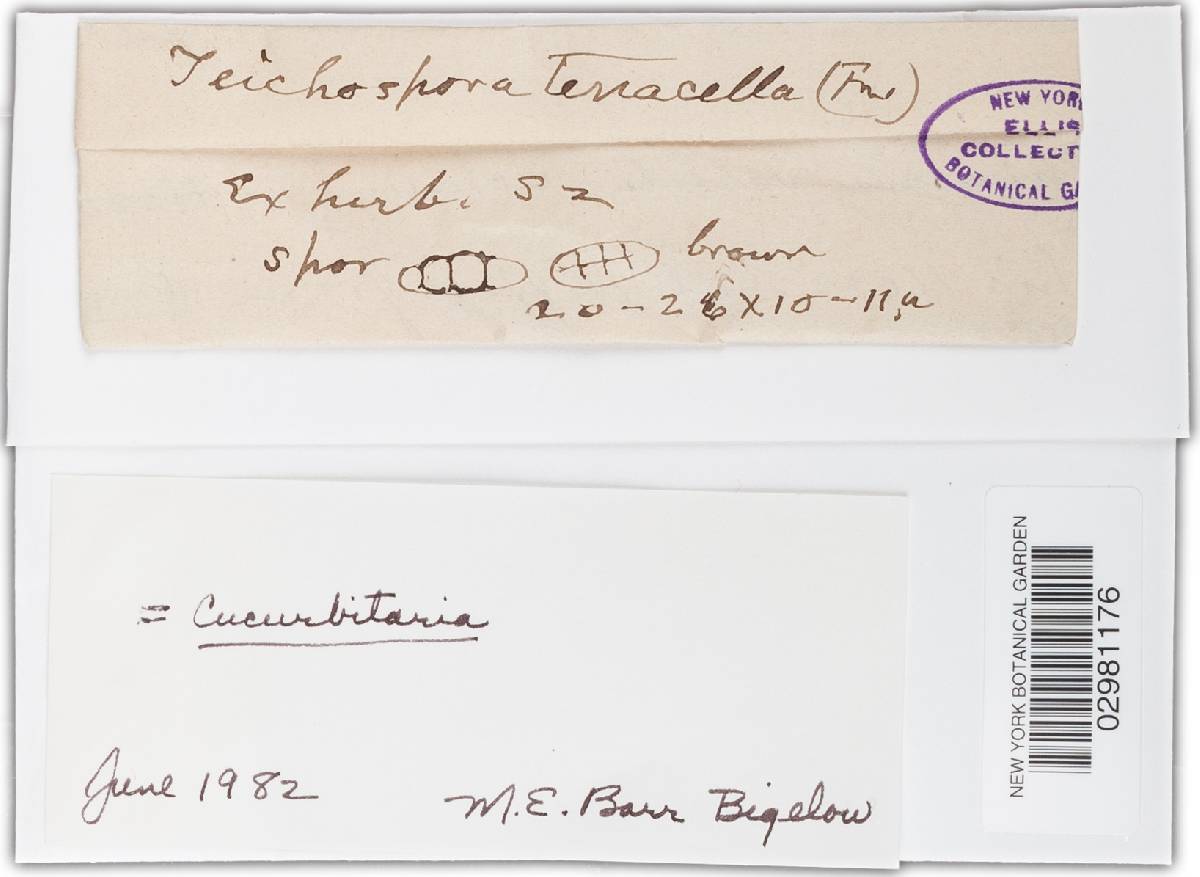 Teichospora terracella (Fw)
NEW YOR
ELLIS
COLLECT
BOTANICAL GA
Ex herb. Sz
spor brown
20-26x10-11µ
= Cucurbitaria
June 1982 M.E. Barr Bigelow
NEW YORK BOTANICAL GARDEN
02981176